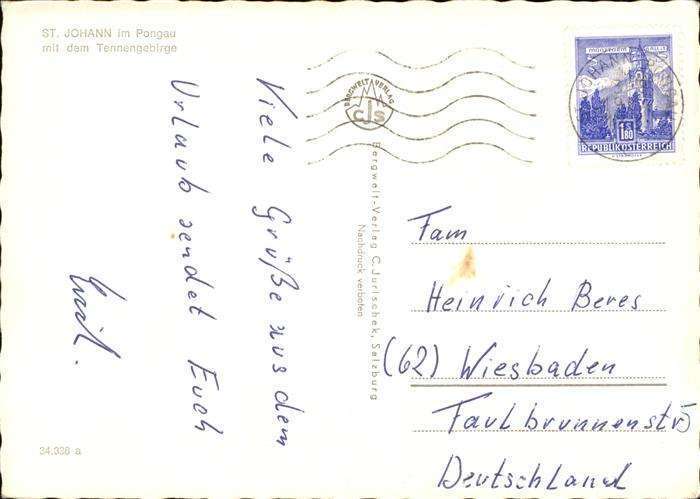 ST. JOHANN im Pongau
mit dem Tennengebirge
BERGWELT VERLAG
CJS
1.80
REPUBLIK ÖSTERREICH
Viele Grüße aus dem
Urlaub sendet Euch
Emil.
Bergwelt-Verlag C. Jurischek, Salzburg
Nachdruck verboten
Fam
Heinrich Beres
(62) Wiesbaden
Faulbrunnenstr 5
Deutschland
34.336 a